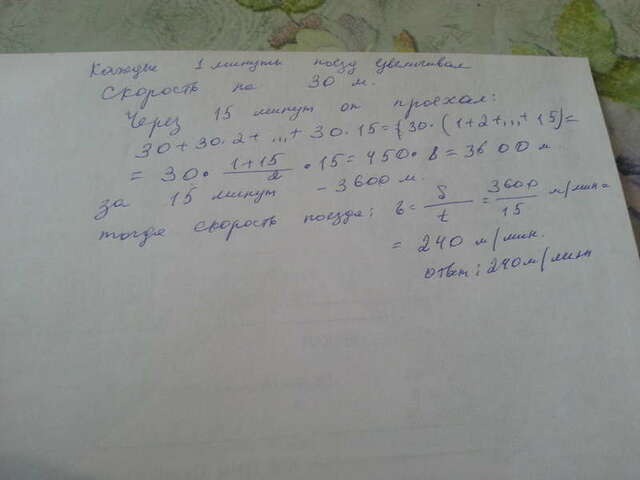 Каждые 1 минуты поезд увеличивал
скорость на 30 м.
Через 15 минут он проехал:
30+30·2+...+30·15={30·(1+2+...+15)=
=30·\frac{1+15}{2}·15=450·8=3600 м.
за 15 минут - 3600 м.
тогда скорость поезда: v=\frac{S}{t}=\frac{3600}{15} м/мин=
= 240 м/мин.
ответ: 240 м/мин